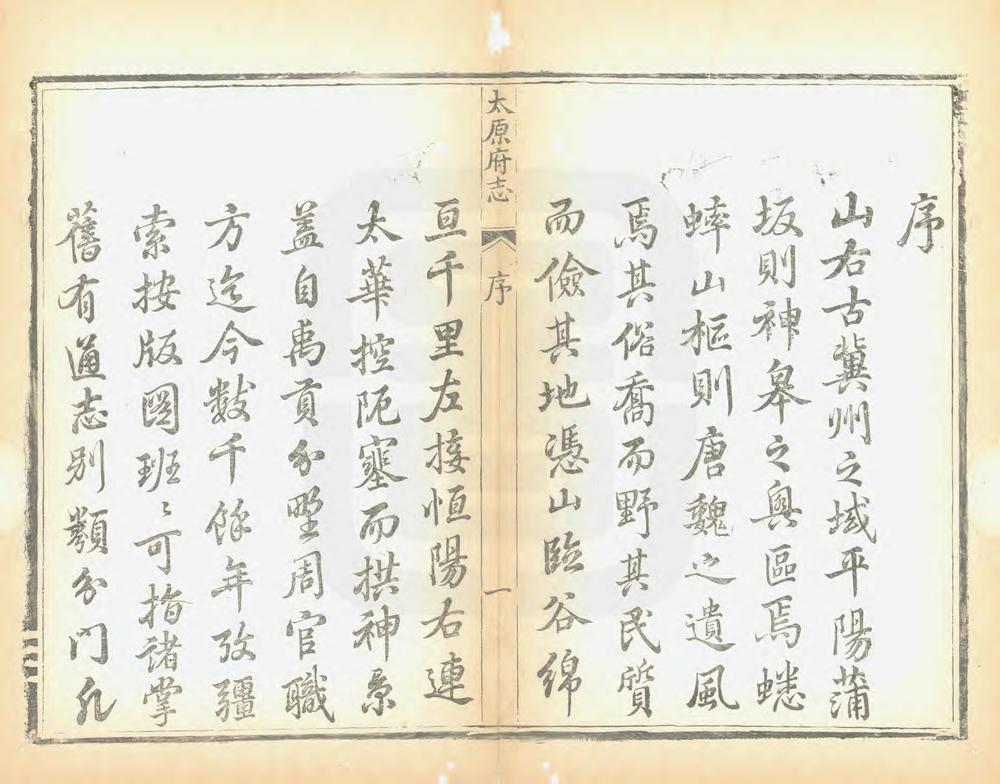 序
山右古冀州之域平陽蒲
坂則神皋之奧區焉蟋
蟀山樞則唐魏之遺風
焉其俗喬而野其民質
而儉其地憑山臨谷綿
太原府志
序
一
亘千里左接恒陽右連
太華控阨塞而拱神京
蓋自禹貢分野周官職
方迄今數千餘年攷疆
索按版圖班〻可指諸掌
舊有通志別類分門凡